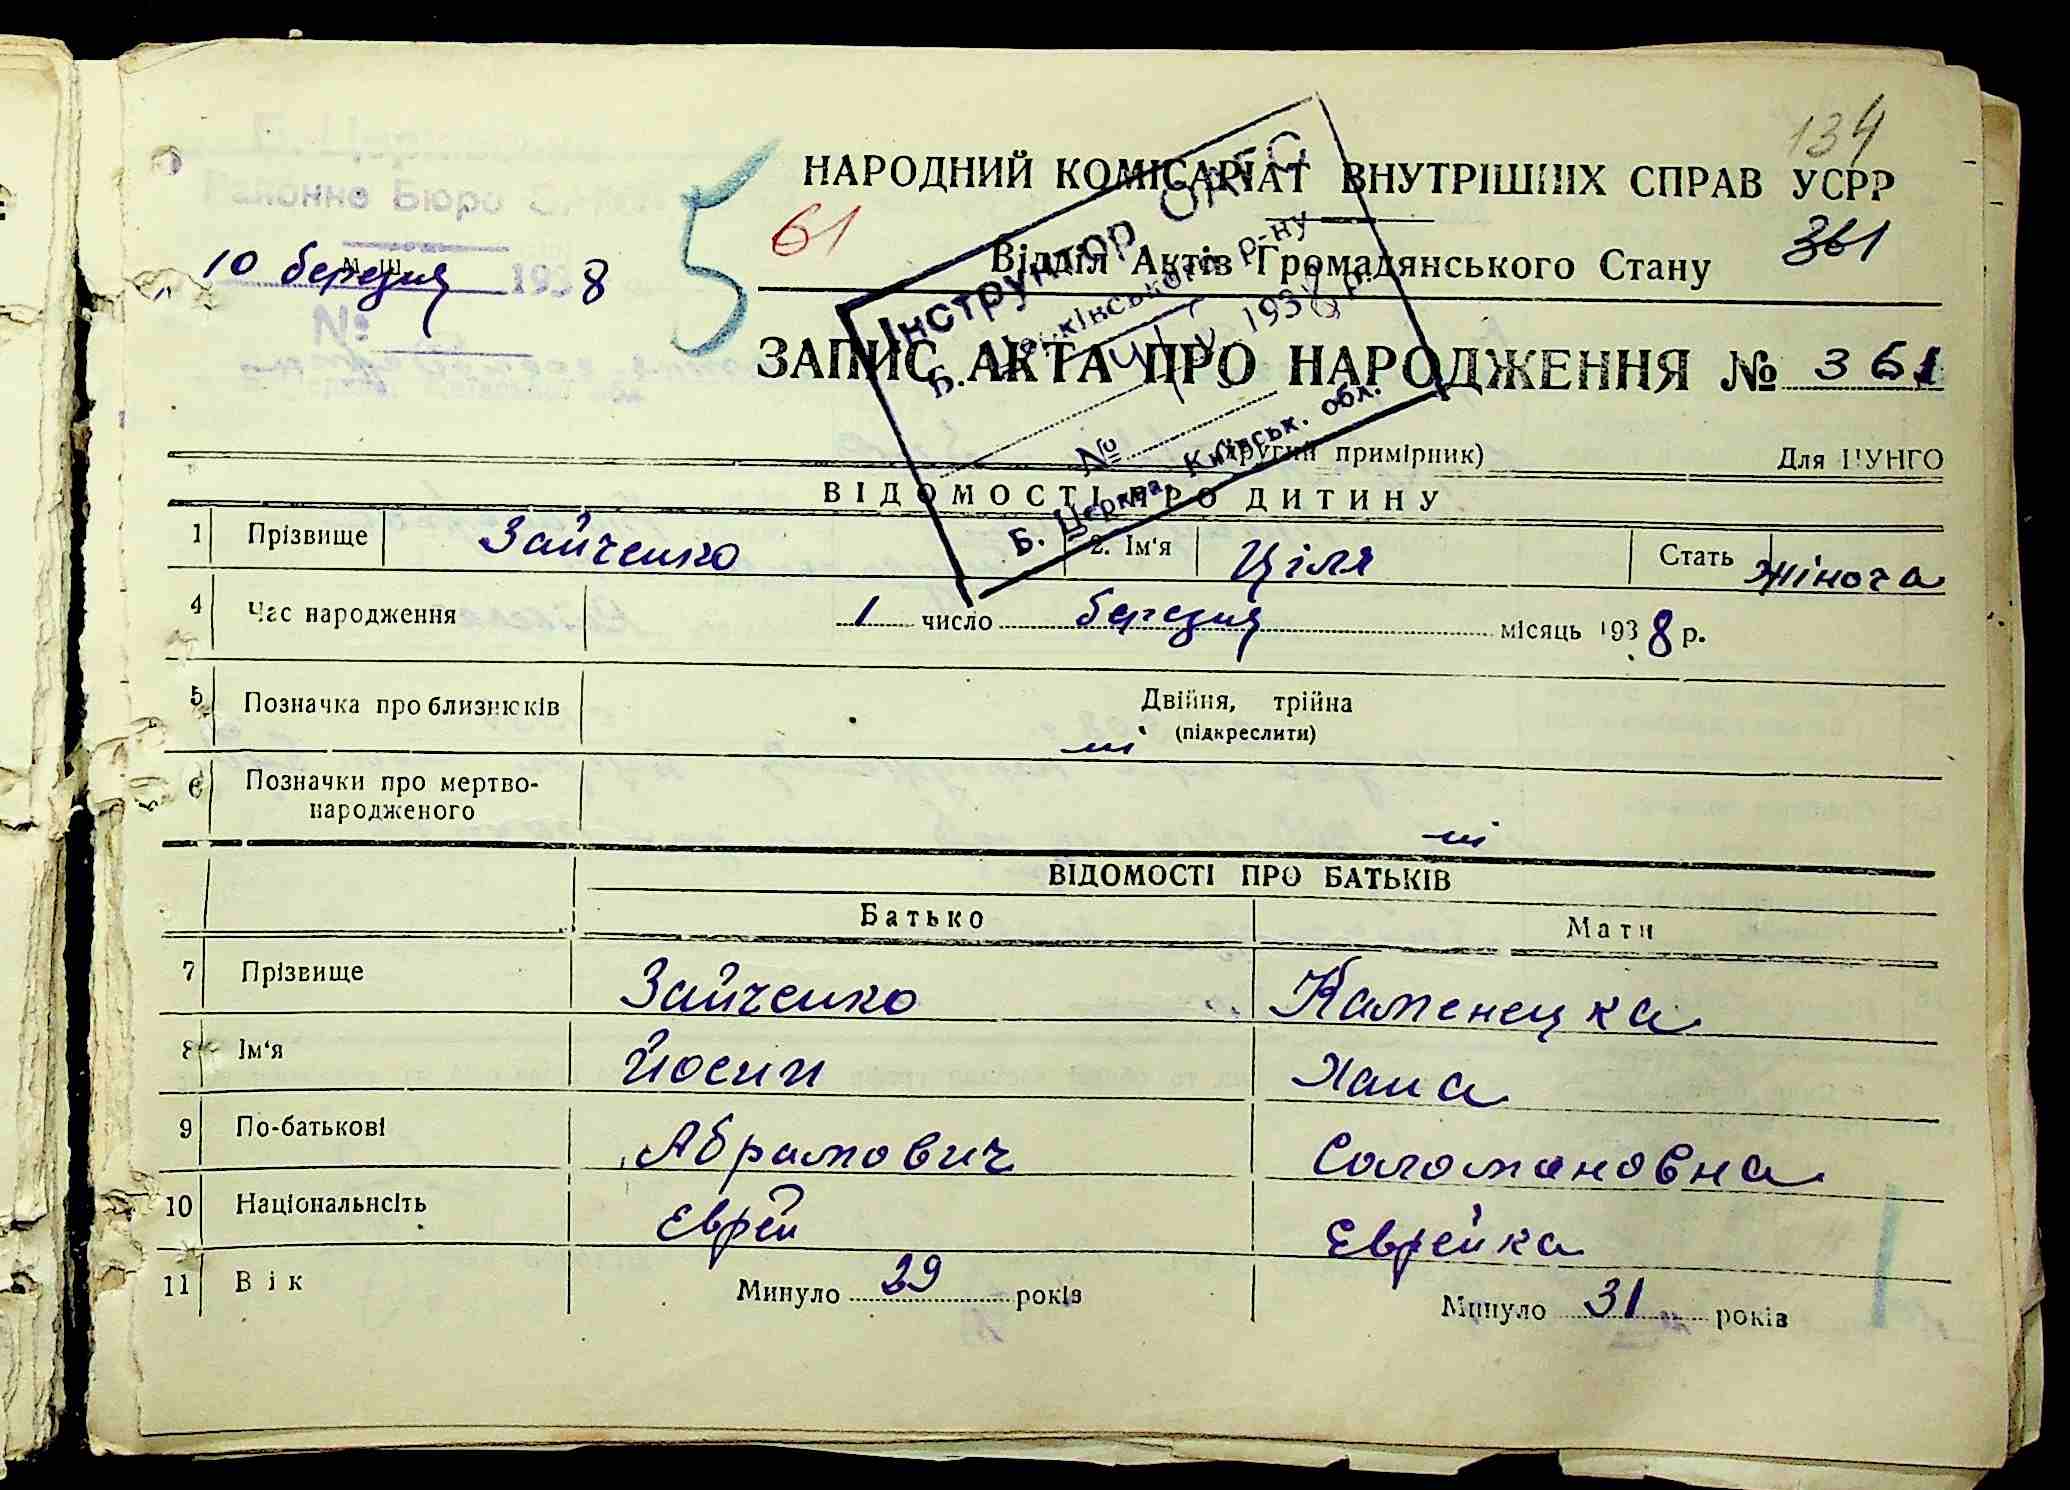 134
НАРОДНИЙ КОМІСАРІАТ ВНУТРІШНІХ СПРАВ УСРР
Районне Бюро
5
61
361
Відділ Актів Громадянського Стану
10 березня 1938
№
Інструктор ОАГС
р-ну
1938 р.
№
Б. Церква, Київськ. обл.
ЗАПИС АКТА ПРО НАРОДЖЕННЯ № 361
(другий примірник) Для ЦУНГО
ВІДОМОСТІ ПРО ДИТИНУ
1 Прізвище Зайченко 2. Ім'я Ціля Стать жіноча
4 Час народження 1 число березня місяць 1938 р.
5 Позначка про близнюків Двійня, трійня
(підкреслити)
ні
6 Позначки про мертво-
народженого ні
ВІДОМОСТІ ПРО БАТЬКІВ
Батько Мати
7 Прізвище Зайченко Каменецка
8 Ім'я Йосип Хана
9 По-батькові Абрамович Соломановна
10 Національнсіть Еврей Еврейка
11 Вік Минуло 29 років Минуло 31 років